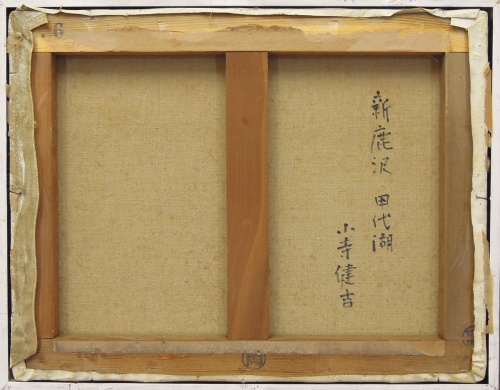 新鹿沢 田代湖
小寺健吉